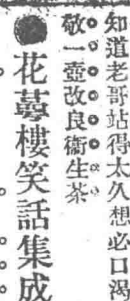 知道老哥站得太久想必口渴
敬一壺改良衞生茶
花萼樓笑話集成